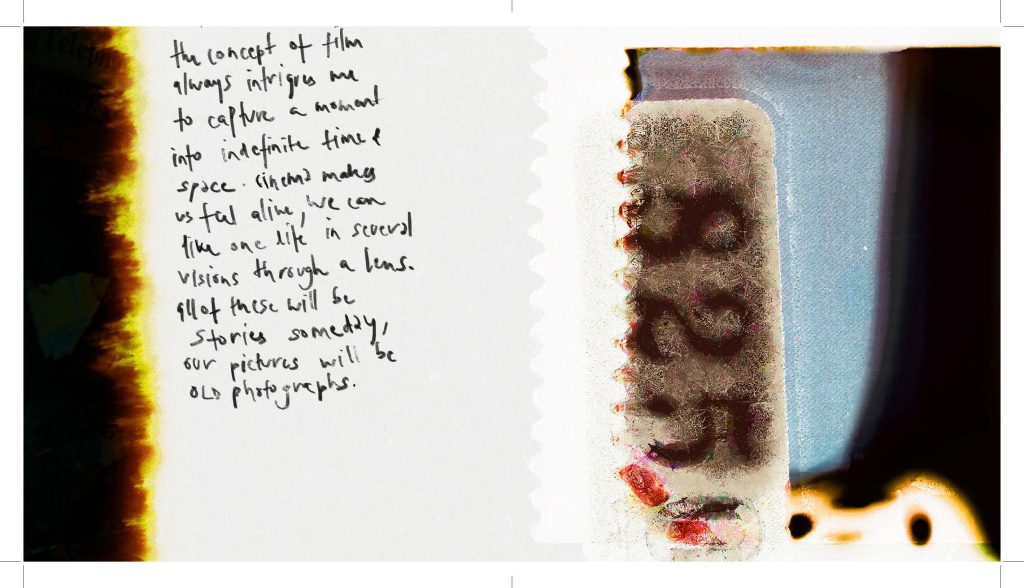 the concept of film
always intrigues me
to capture a moment
into indefinite time &
space. cinema makes
us feel alive, we can
live one life in several
visions through a lens.
all of these will be
stories someday,
our pictures will be
OLD photographs.